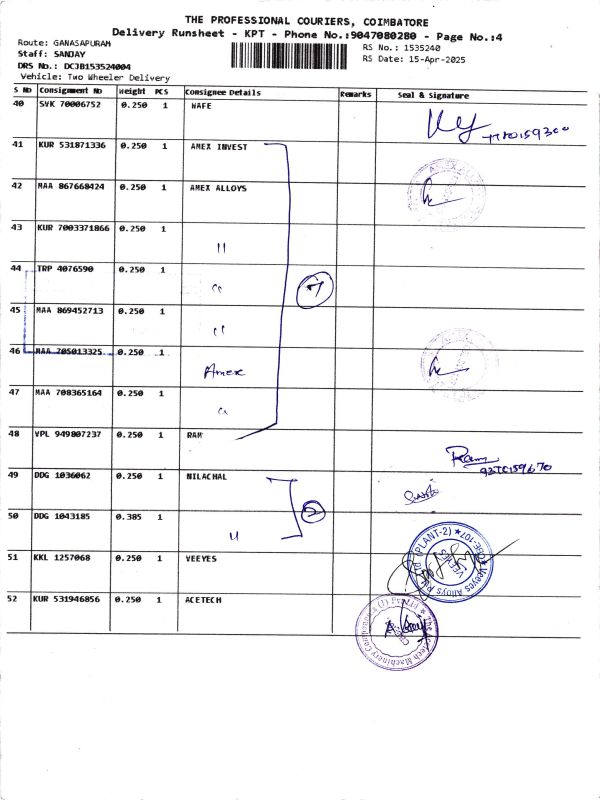 THE PROFESSIONAL COURIERS, COIMBATORE
Delivery Runsheet - KPT - Phone No.:9047080280 - Page No.:4
Route: GANASAPURAM
Staff: SANJAY
DRS No.: DCJB153524004
Vehicle: Two Wheeler Delivery
RS No.: 1535240
RS Date: 15-Apr-2025
S No Consignment No Weight PCS Consignee Details Remarks Seal & Signature
40 SVK 70006752 0.250 1 WAFE
41 KUR 531871336 0.250 1 AMEX INVEST
42 MAA 867668424 0.250 1 AMEX ALLOYS
43 KUR 7003371866 0.250 1
"
44 TRP 4076590 0.250 1
"
7
45 MAA 869452713 0.250 1
"
46 MAA 705013325 0.250 1
Amex
47 MAA 708365164 0.250 1
"
48 VPL 949807237 0.250 1 RAM
Ram
49 DDG 1036062 0.250 1 NILACHAL
2
50 DDG 1043185 0.385 1
"
51 KKL 1257068 0.250 1 VEEYES
Veeyes Alloys (PLANT-2)
52 KUR 531946856 0.250 1 ACETECH